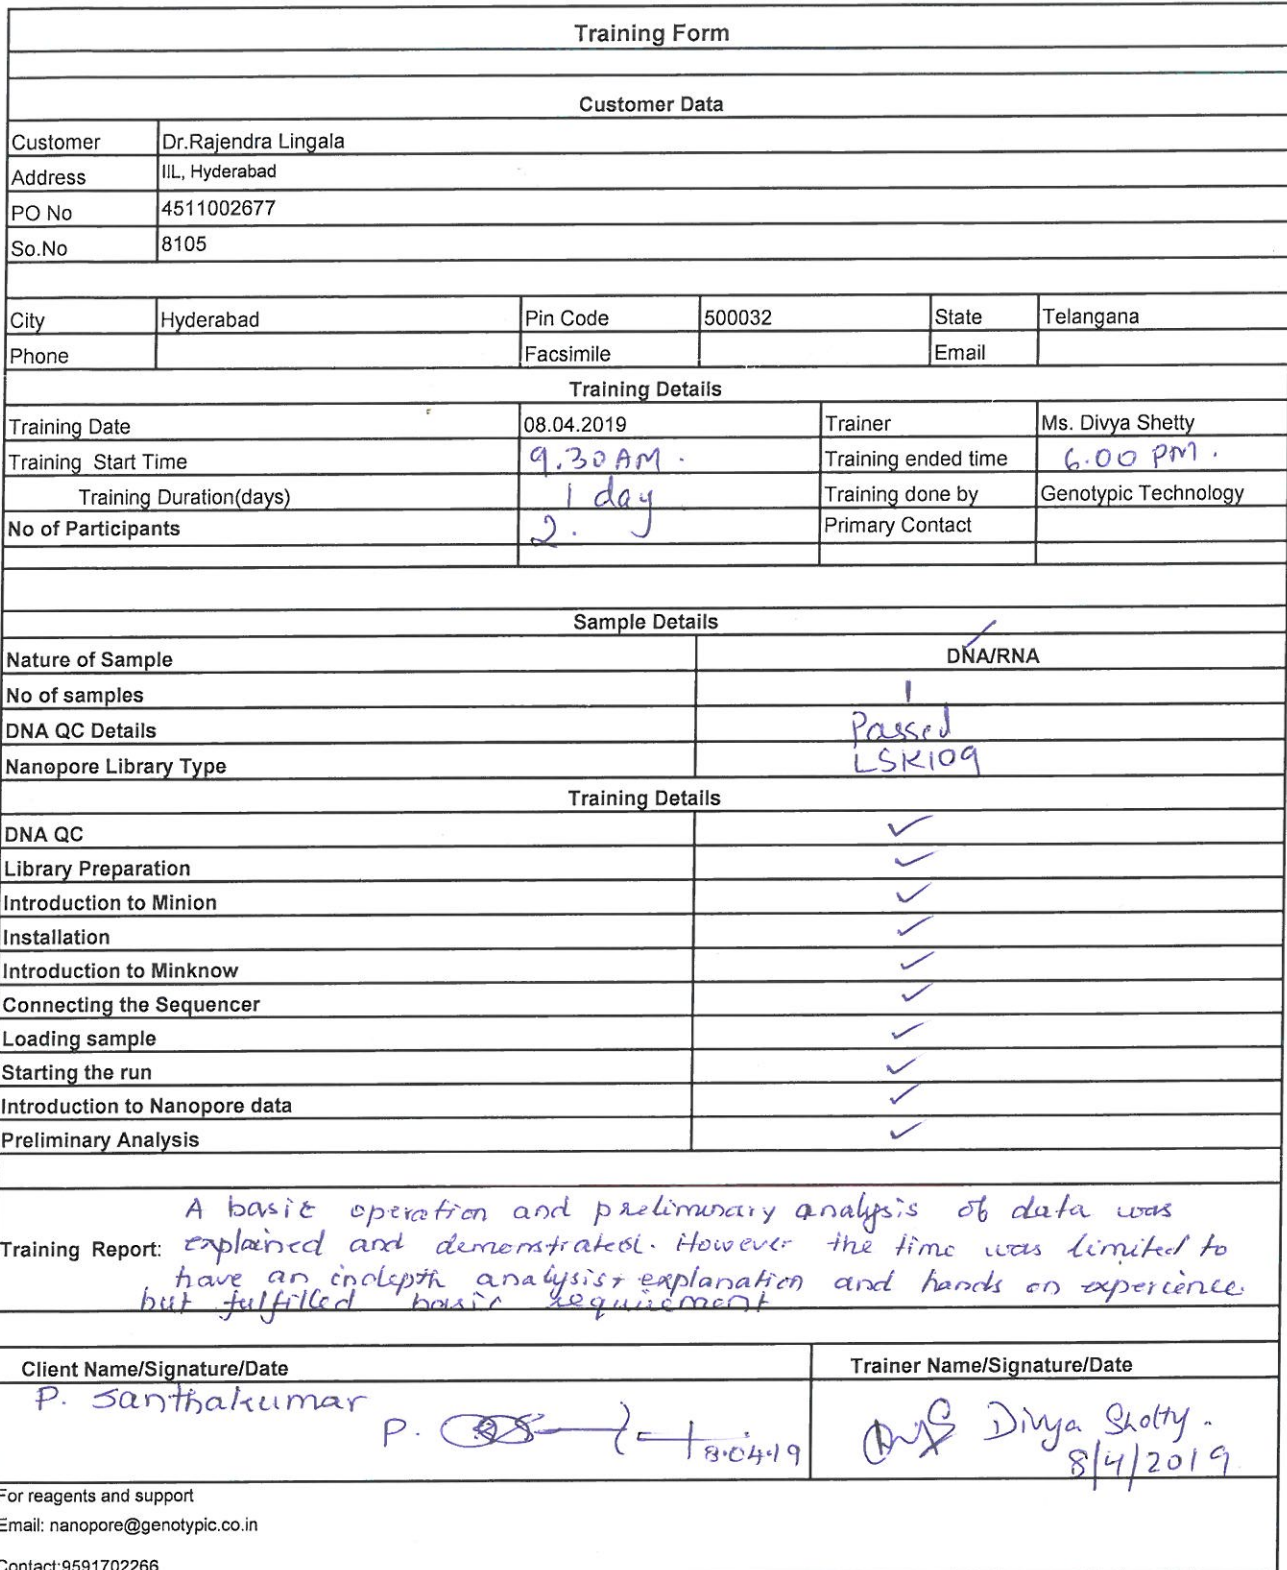 Training Form
Customer Data
Customer Dr.Rajendra Lingala
Address IIL, Hyderabad
PO No 4511002677
So.No 8105
City Hyderabad Pin Code 500032 State Telangana
Phone Facsimile Email
Training Details
Training Date 08.04.2019 Trainer Ms. Divya Shetty
Training Start Time 9.30 AM. Training ended time 6.00 PM.
Training Duration(days) 1 day Training done by Genotypic Technology
No of Participants 2. Primary Contact
Sample Details
Nature of Sample DNA/RNA
No of samples 1
DNA QC Details Passed
Nanopore Library Type LSK109
Training Details
DNA QC ✓
Library Preparation ✓
Introduction to Minion ✓
Installation ✓
Introduction to Minknow ✓
Connecting the Sequencer ✓
Loading sample ✓
Starting the run ✓
Introduction to Nanopore data ✓
Preliminary Analysis ✓
A basic operation and preliminary analysis of data was
Training Report: explained and demonstrated. However the time was limited to
have an indepth analysis & explanation and hands on experience.
but fulfilled basic requirement
Client Name/Signature/Date Trainer Name/Signature/Date
P. Santhakumar
P. 8.04.19 Divya Shetty.
8/4/2019
For reagents and support
Email: nanopore@genotypic.co.in
Contact:9591702266